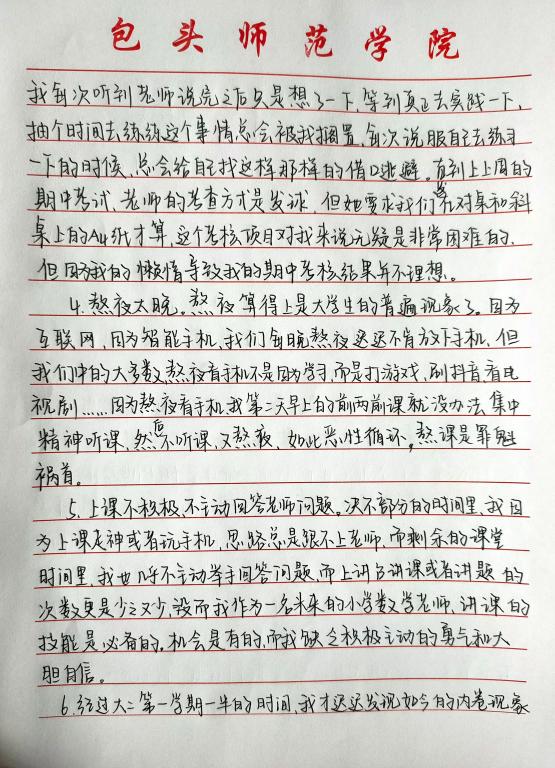 包头师范学院
我每次听到老师说完之后只是想了一下,等到真正去实践一下,
抽个时间去练练这个事情总会被我搁置,每次说服自己去练习
一下的时候,总会给自己找这样那样的借口逃避。直到上上周的
期中考试,老师的考查方式是发球,但她要求我们发在对桌和斜
桌上的A4纸才算,这个考核项目对我来说无疑是非常困难的,
但因为我的懒惰导致我的期中考核结果并不理想。
4.熬夜太晚。熬夜算得上是大学生的普遍现象了。因为
互联网,因为智能手机,我们每晚熬夜迟迟不肯放下手机,但
我们中的大多数熬夜看手机不是因为学习,而是打游戏,刷抖音看电
视剧……因为熬夜看手机我第二天早上的前两节课就没办法集中
精神听课,然后不听课,又熬夜,如此恶性循环,熬课是罪魁
祸首。
5.上课不积极,不主动回答老师问题。决大部分的时间里,我因
为上课走神或者玩手机,思路总是跟不上老师,而剩余的课堂
时间里,我也几乎不主动举手回答问题,而上讲台讲课或者讲题的
次数更是少之又少,没而我作为一名未来的小学数学老师,讲课的
技能是必备的。机会是有的,而我缺乏积极主动的勇气和大
胆自信。
6.经过大二第一学期一半的时间,我才迟迟发现如今的内卷现象